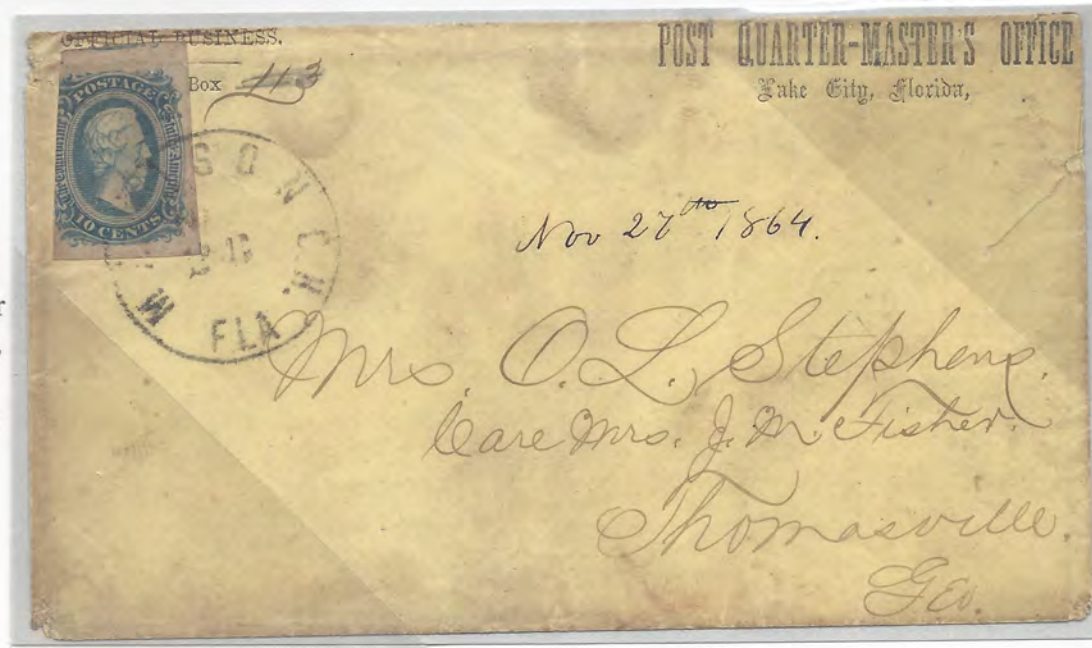 OFFICIAL BUSINESS.
POST QUARTER-MASTER'S OFFICE
Box 113
Lake City, Florida,
POSTAGE
The Confederate States of America
10 CENTS
M SON C.H.
FLA
Nov 27th 1864.
Mrs. O. L. Stephens.
Care Mrs. J. M. Fisher.
Thomasville.
Geo.